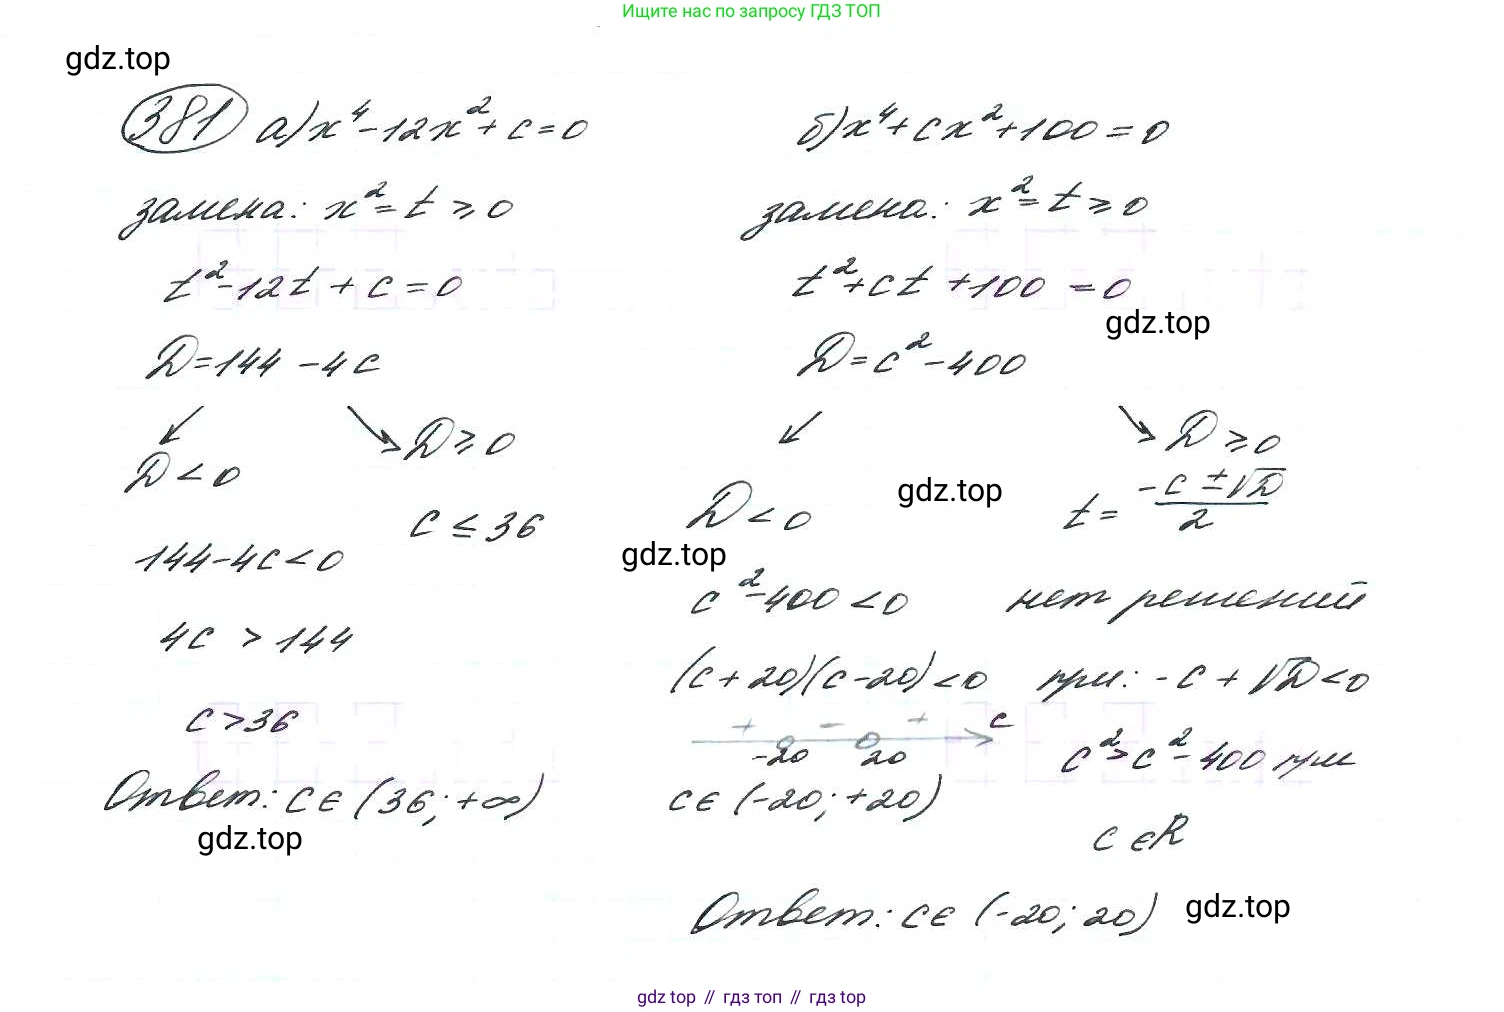 Ищите нас по запросу ГДЗ ТОП
gdz.top
381 а) x⁴-12x²+c=0
замена: x²=t≥0
t²-12t+c=0
D=144-4c
D<0
D≥0
c≤36
144-4c<0
4c>144
c>36
Ответ: c∈(36;+∞)
gdz.top
б) x⁴+cx²+100=0
замена: x²=t≥0
t²+ct+100=0
gdz.top
D=c²-400
D<0
D≥0
gdz.top
t=(-c±√D)/2
gdz.top
c²-400<0
(c+20)(c-20)<0
+ - + c
-20 20
c∈(-20;+20)
нет решений
при: -c+√D<0
c²>c²-400 при
c∈R
Ответ: c∈(-20;20)
gdz.top
gdz top // гдз топ // гдз top